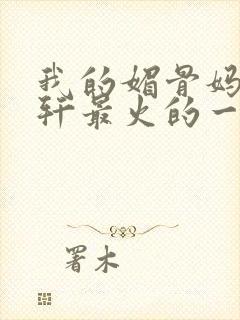 我的媚骨妈
轩最火的一
署木